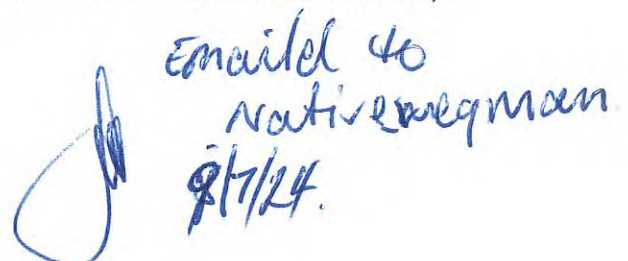 Emaild to
Nativevegman
8/7/24.